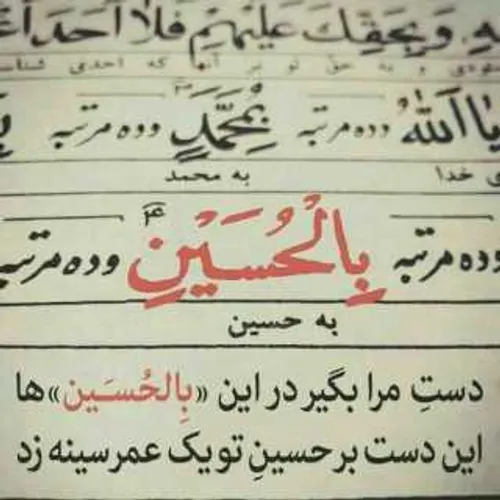 هِ، وَبِحَقِّكَ عَلَيْهِمْ فَلَا أَحَدَ
و به حق تو بر آنها که احدی شناسا
يَا اَللَّهُ وده مرتبه بِمُحَمَّدٍ وده مرتبه
ی خدا به محمد
وده مرتبه بِالْحُسَيْنِ وده مرتبه
به حسین
دستِ مرا بگیر در این «بِالحُسَین»ها
این دست بر حسینِ تو یک عمر سینه زد